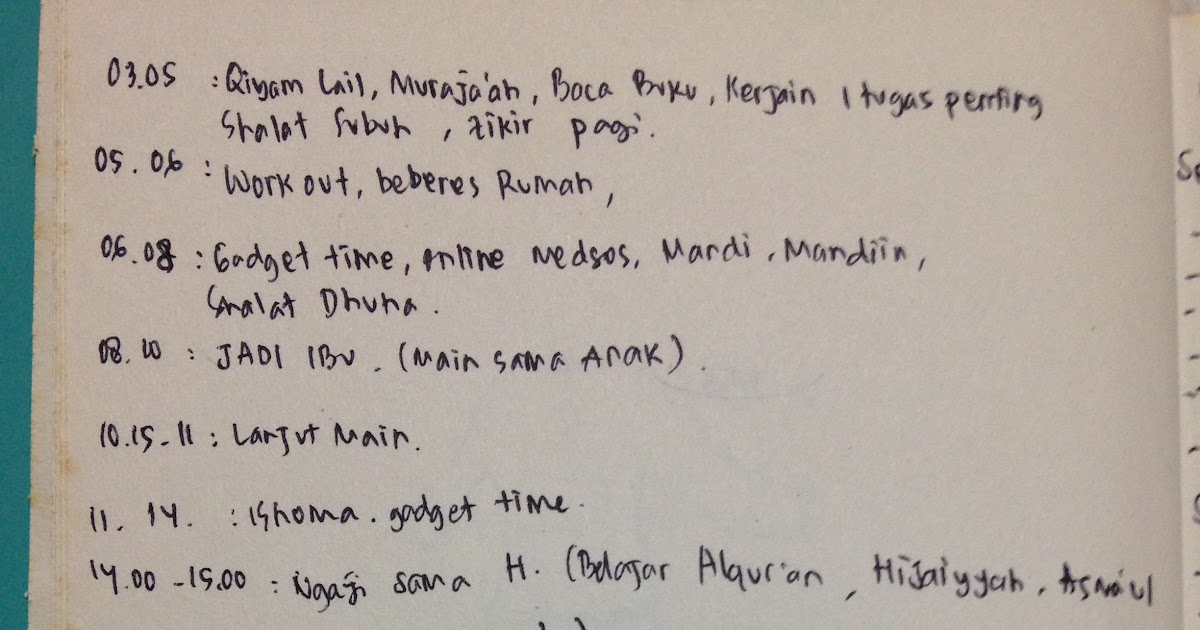 03.05 : Qiyam Lail, Muraja'ah, Baca Buku, Kerjain 1 tugas penting
Shalat Subuh, zikir pagi.
05.06 : Work out, beberes Rumah,
06.08 : Gadget time, online medsos, Mandi, Mandiin,
Shalat Dhuha.
08.10 : JADI IBU. (Main sama Anak).
10.15-11 : Lanjut Main.
11. 14. : Ishoma. gadget time.
14.00 - 15.00 : Ngaji sama H. (Belajar Alqur'an, Hijaiyyah, Asma'ul